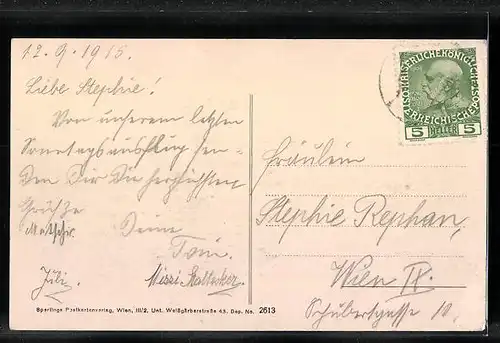 12.9.1915.
Liebe Stephie!
Von unserem letzten
Sonntagsausflug sen-
den Dir die herzlichsten
Grüsse
Deine
Toni.
Juli. Mizzi
Fräulein
Stephie Rephan,
Wien IX.
Schubertgasse 10.
KAISERLICHE KÖNIGLICHE
ÖSTERREICHISCHE POST
5 HELLER 5
Sperlings Postkartenverlag, Wien, III/2, Unt. Weißgärberstraße 43. Dep. No. 2613